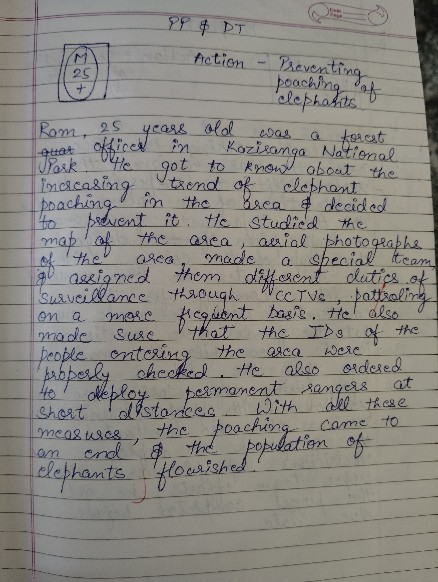 PP & DT
M
25
+
Action - Preventing
poaching of
elephants
Ram, 25 years old was a forest
officer in Kaziranga National
Park. He got to know about the
increasing trend of elephant
poaching in the area & decided
to prevent it. He studied the
map of the area, aerial photographs
of the area, made a special team
& assigned them different duties of
surveillance through CCTVs, pattroling
on a more frequent basis. He also
made sure that the IDs of the
people entering the area were
properly checked. He also ordered
to deploy permanent rangers at
short distances. With all these
measures, the poaching came to
an end & the population of
elephants flourished.